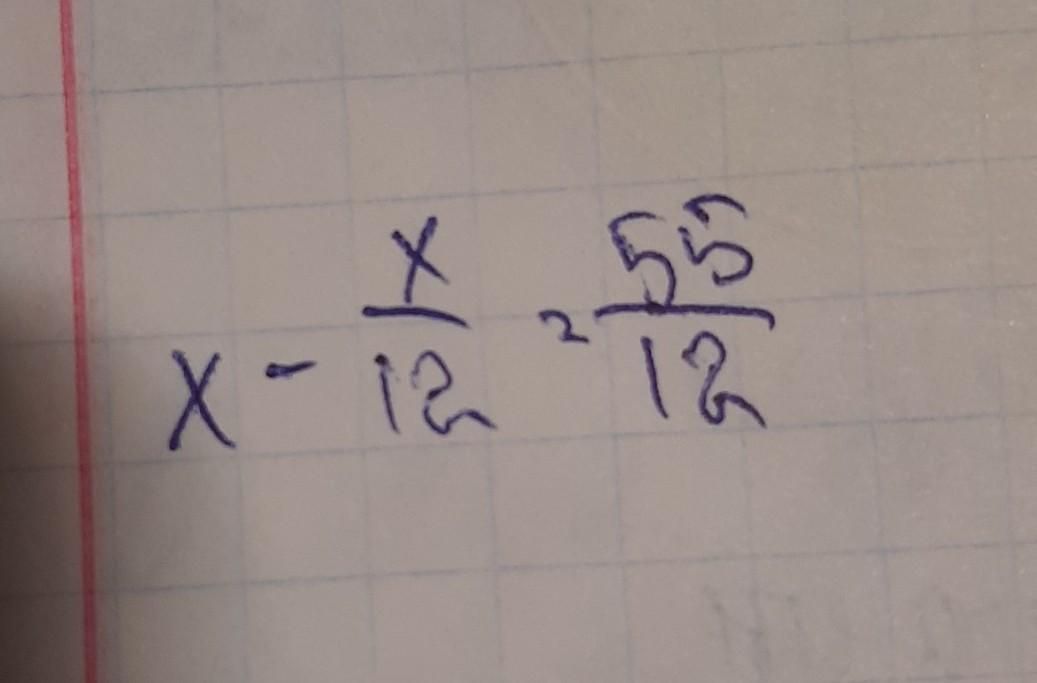 x - x/12 = 55/12